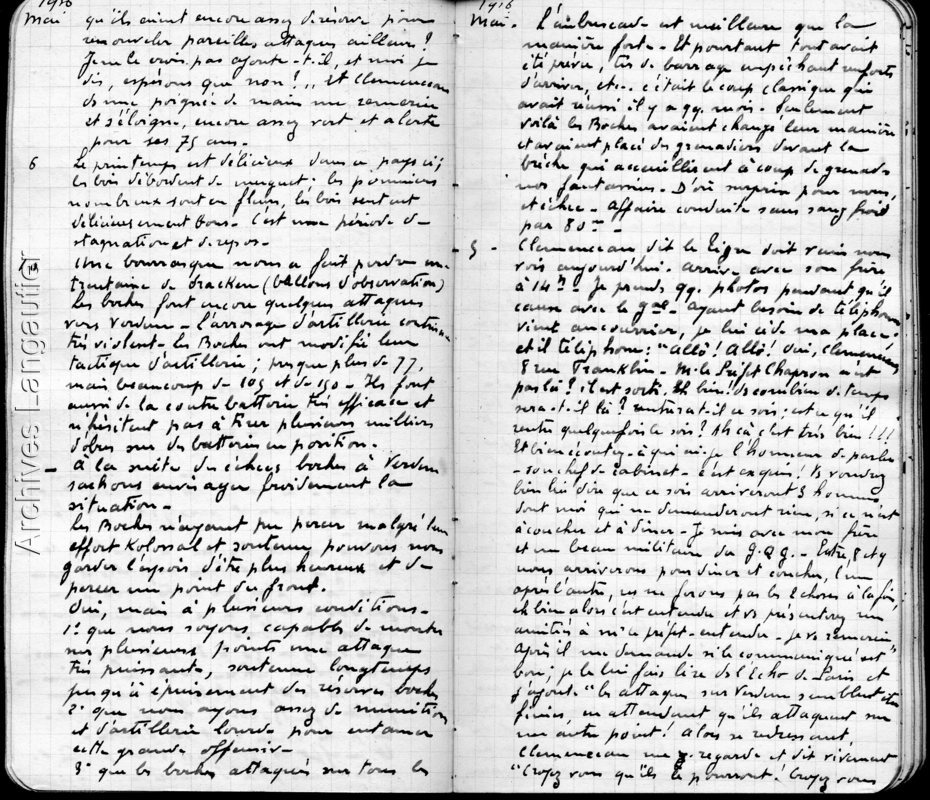 1916
Mai qu'ils aient encore assez de réserve pour
renouveler pareilles attaques ailleurs?
Je ne le crois pas ajoute-t-il, et moi je
dis, espérons que non!,, Et Clemenceau
d'une poignée de main me remercie
et s'éloigne, encore assez vert et alerte
pour ses 75 ans.
6 Le printemps est délicieux dans ce pays ci,
les bois débordent de muguet. les pommiers
nombreux sont en fleurs, les bois sentent
délicieusement bons. C'est une période de
stagnation et de repos.
Une bourrasque nous a fait perdre une
trentaine de dracken (ballons d'observation)
Les boches font encore quelques attaques
vers Verdun - l'arrosage d'artillerie continue
très violent. les Boches ont modifié leur
tactique d'artillerie; presque plus de 77,
mais beaucoup de 105 et de 150 - Ils font
aussi de la contre batterie très efficace et
n'hésitent pas à tirer plusieurs milliers
d'obus sur des batteries en position.
- à la suite des échecs boches à Verdun
sachons envisager froidement la
situation -
les Boches n'ayant pu percer malgré leur
effort Kolossal et soutenu, pouvons nous
garder l'espoir d'être plus heureux et de
percer un point du front.
Oui, mais à plusieurs conditions -
1° que nous soyons capables de monter
sur plusieurs points une attaque
très puissante, soutenue longtemps
jusqu'à épuisement des réserves boches
2° que nous ayons assez de munitions
et d'artillerie lourde pour entamer
cette grande offensive -
3° que les boches attaqués sur tous les
1916
Mai. L'embuscade est meilleure que la
manière forte - Et pourtant tout avait
été prévu, tirs de barrage empêchant renforts
d'arriver, etc.. c'était le coup classique qui
avait réussi il y a qq. mois. Seulement
voilà les Boches avaient changé leur manière
et avaient placé des grenadiers devant la
brèche qui accueillirent à coup de grenades
nos fantassins. D'où surprise pour nous,
et échec. Affaire conduite sans sang froid
par 80
5 - Clemenceau dit le Tigre doit venir nous
voir aujourd'hui. arrive avec son frère
à 14h - Je prends qq. photos pendant qu'il
cause avec le gal - Ayant besoin de téléphoner
vient au courrier, je lui cède ma place,
et il téléphone: "Allô! Allô! Oui, Clemenceau
8 rue Franklin - Mr le Préfet Chapron n'est
pas là? il est sorti. Eh bien! ds combien de temps
sera-t-il là? rentrera-t-il ce soir, est ce qu'il
rentre quelquefois le soir? Ah çà c'est très bien!!!
Et bien écoutez - à qui ai-je l'honneur de parler
- sous chef de cabinet - c'est exquis! Vs voudrez
bien lui dire que ce soir arriveront 3 hommes
dont moi qui ne demanderont rien, si ce n'est
à coucher et à diner - Je suis avec mon frère
et un beau militaire du G.Q.G. - Entre 8 et 9
nous arriverons pour diner et coucher, l'un
après l'autre, ns ne ferons pas les 2 choses à la fois,
eh bien alors c'est entendu et vs présenterez mes
amitiés à Mr le préfet - entendu - je vs remercie"
Après il me demande si le communiqué est
bon; je le lui fais lire ds l'Echo de Paris et
j'ajoute. "les attaques sur Verdun semblent être
finies, en attendant qu'ils attaquent sur
un autre point! Alors se redressant
Clemenceau me regarde et dit vivement
"Croyez vous qu'ils le pourront! Croyez vous
Archives Langautier